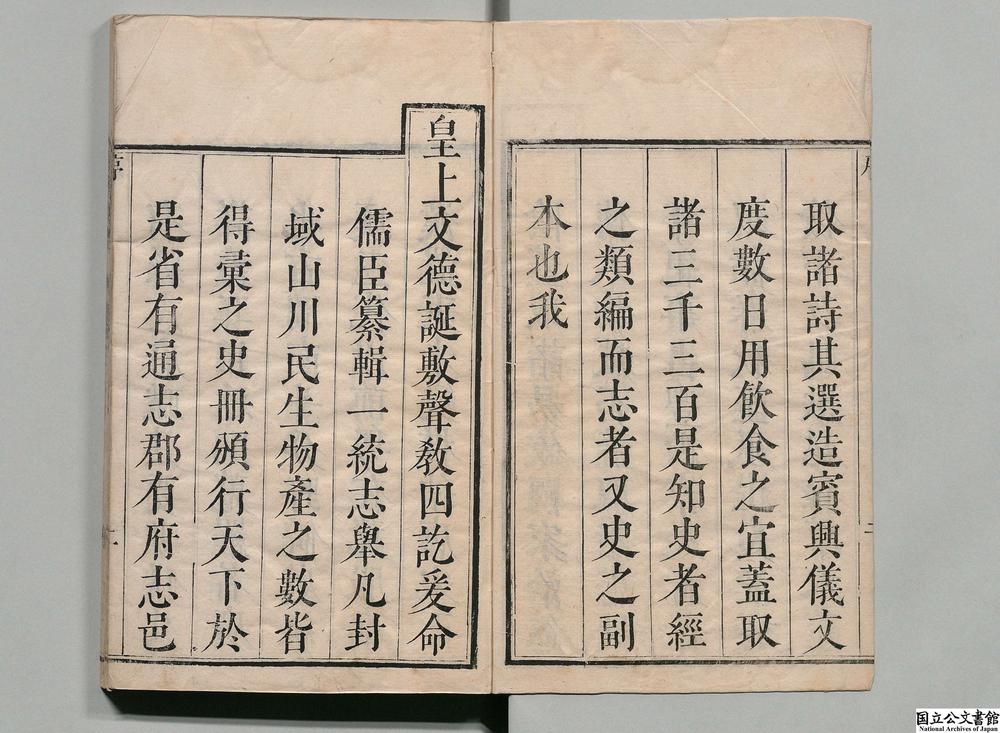 取諸詩其選造賓興儀文
度數日用飲食之宜蓋取
諸三千三百是知史者經
之類編而志者又史之副
本也我
皇上文德誕敷聲教四訖爰命
儒臣纂輯一統志舉凡封
域山川民生物產之數皆
得彚之史冊頒行天下於
是省有通志郡有府志邑
国立公文書館
National Archives of Japan